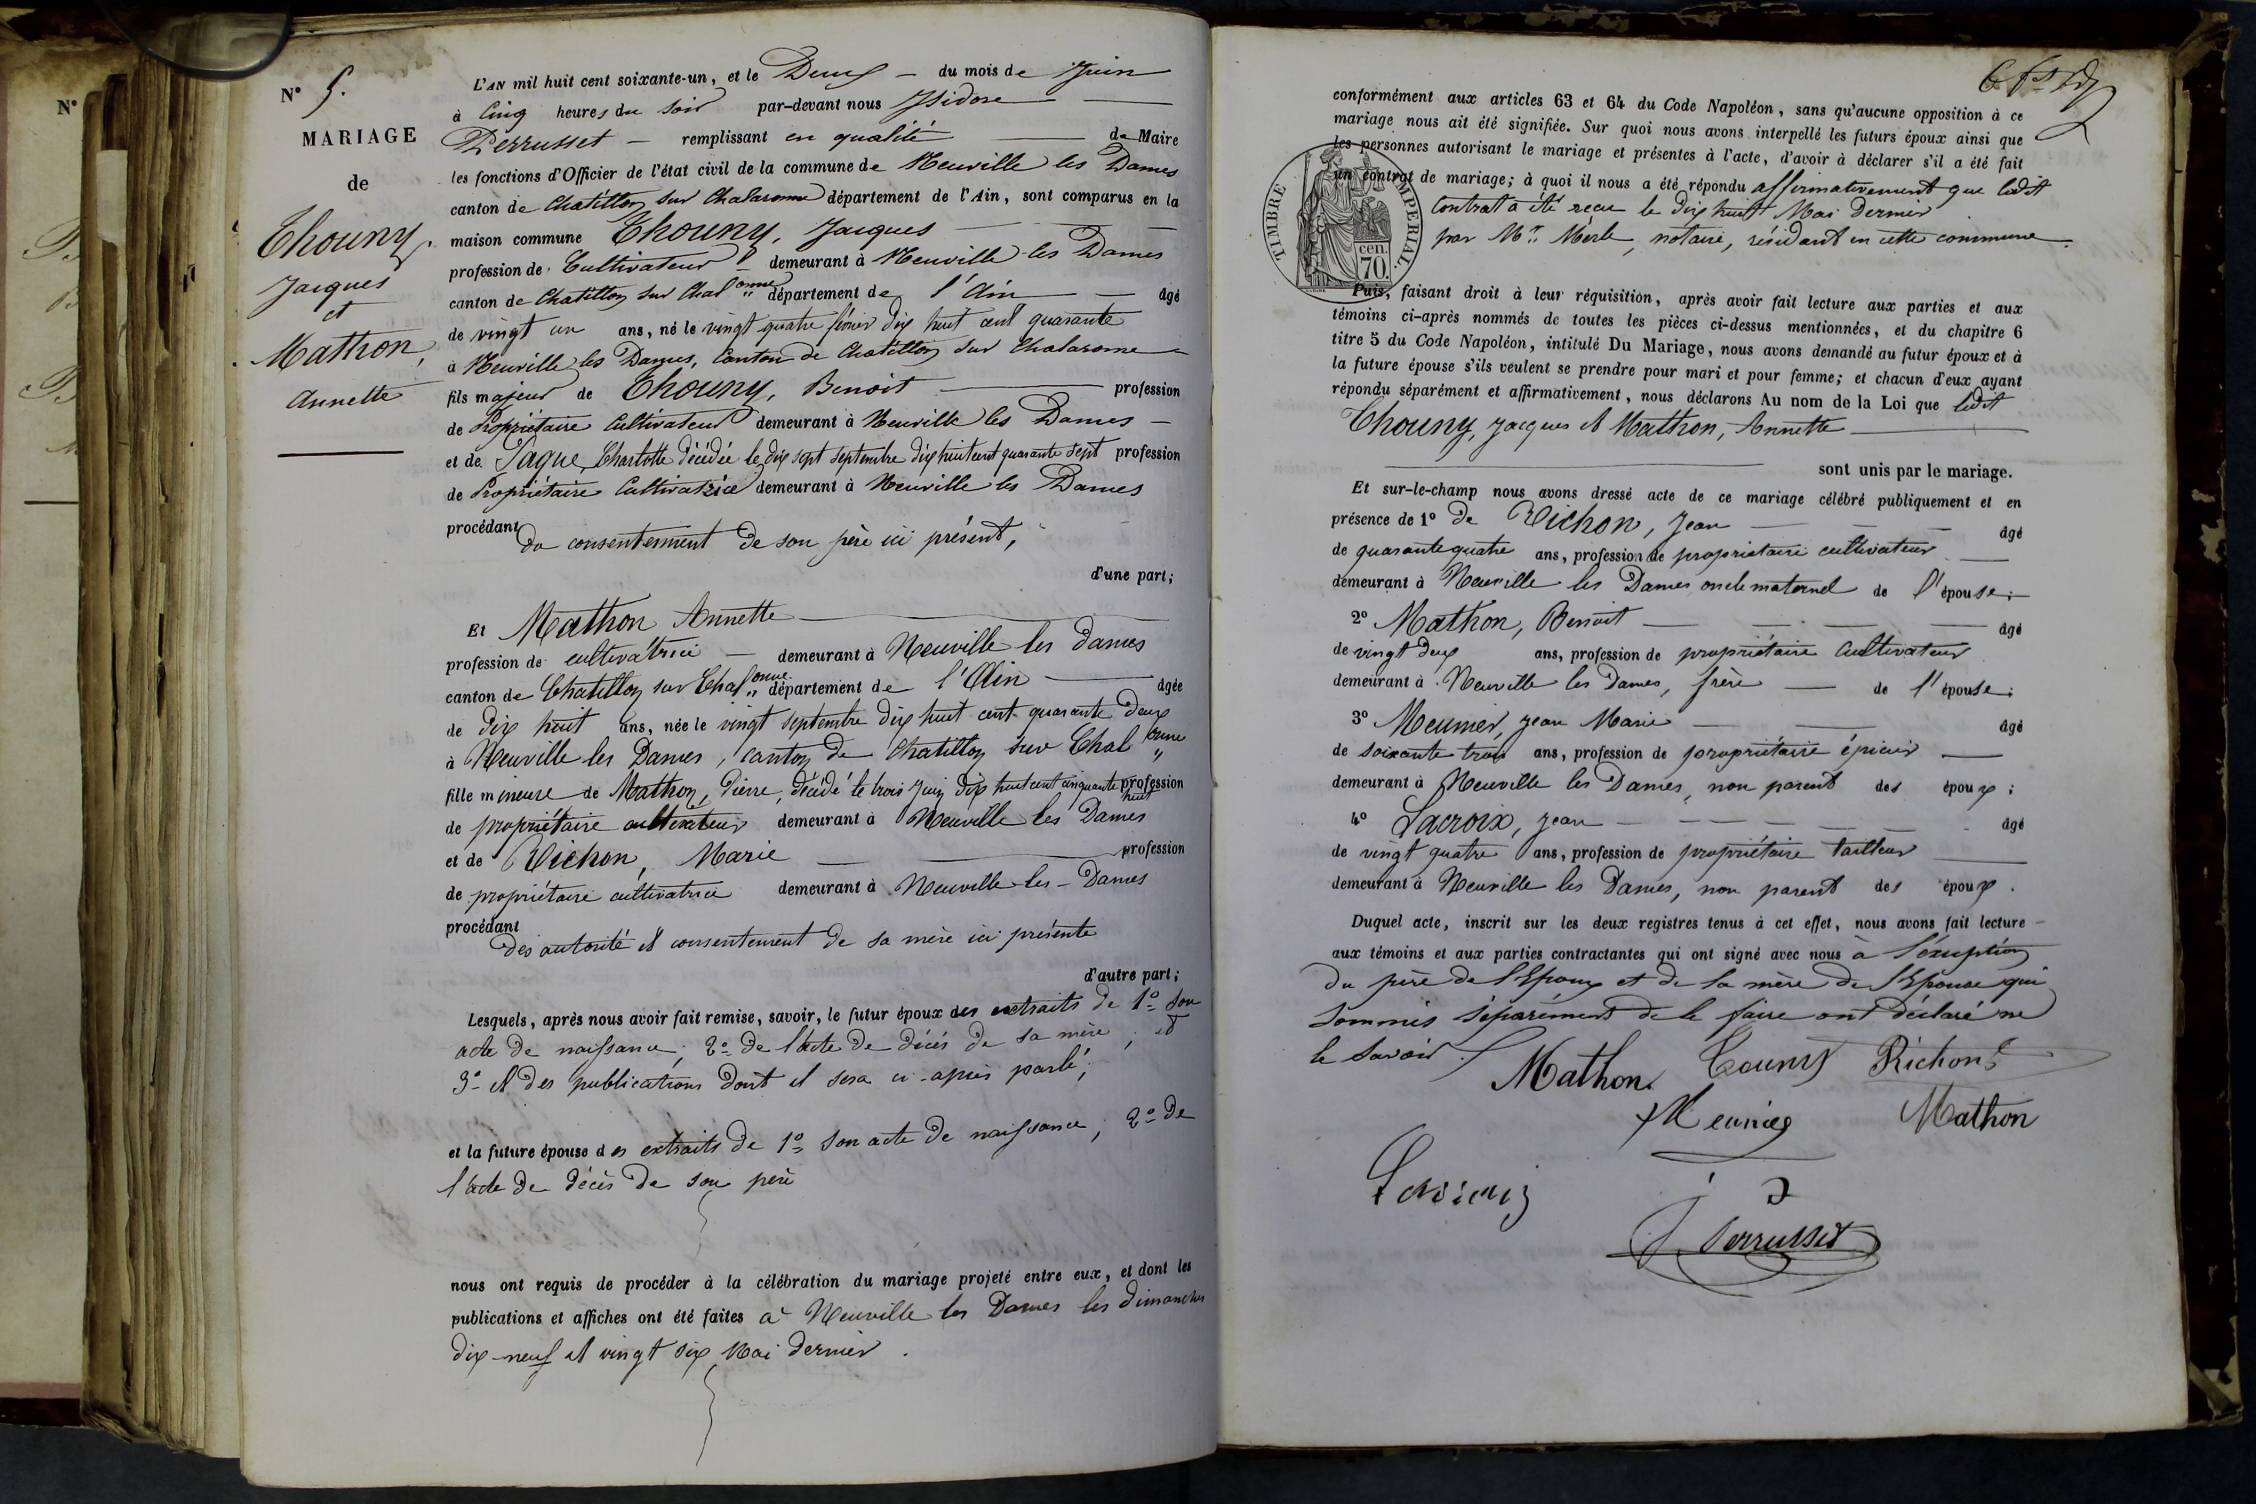 N°
N° 5.
MARIAGE
de
Thouny,
Jacques
et
Mathon,
Annette
L'AN mil huit cent soixante-un, et le Deux du mois de Juin
à Cinq heures du soir par-devant nous Isidore
Perrusset remplissant en qualité de Maire
les fonctions d'Officier de l'état civil de la commune de Neuville les Dames
canton de Chatillon sur Chalaronne département de l'Ain, sont comparus en la
maison commune Thouny, Jacques
profession de Cultivateur demeurant à Neuville les Dames
canton de Chatillon sur Chal onne département de l'Ain âgé
de vingt un ans, né le vingt quatre février dix huit cent quarante
à Neuville les Dames, Canton de Chatillon sur Chalaronne
fils majeur de Thouny, Benoit profession
de Propriétaire Cultivateur demeurant à Neuville les Dames
et de Jaque, Charlotte décédée le dix sept septembre dix huit cent quarante sept profession
de Propriétaire Cultivatrice demeurant à Neuville les Dames
procédant du consentement de son père ici présent,
d'une part;
Et Mathon Annette
profession de cultivatrice demeurant à Neuville les Dames
canton de Chatillon sur Chal onne département de l'Ain âgée
de dix huit ans, née le vingt septembre dix huit cent quarante deux
à Neuville les Dames, canton de Chatillon sur Chal onne
fille mineure de Mathon, Pierre, décédé le trois Juin dix huit cent cinquante huit profession
de propriétaire cultivateur demeurant à Neuville les Dames
et de Richon, Marie profession
de propriétaire cultivatrice demeurant à Neuville les Dames
procédant des autorité et consentement de sa mère ici présente
d'autre part;
Lesquels, après nous avoir fait remise, savoir, le futur époux des extraits de 1° son
acte de naissance; 2° de l'acte de décès de sa mère; et
3° et des publications dont il sera ci-après parlé;
et la future épouse des extraits de 1° son acte de naissance; 2° de
l'acte de décès de son père
nous ont requis de procéder à la célébration du mariage projeté entre eux, et dont les
publications et affiches ont été faites à Neuville les Dames les dimanches
dix-neuf et vingt six Mai dernier.
conformément aux articles 63 et 64 du Code Napoléon, sans qu'aucune opposition à ce
mariage nous ait été signifiée. Sur quoi nous avons interpellé les futurs époux ainsi que
les personnes autorisant le mariage et présentes à l'acte, d'avoir à déclarer s'il a été fait
un contrat de mariage; à quoi il nous a été répondu affirmativement que ledit
Contrat a été reçu le dix huit Mai dernier
par Mr. Merle, notaire, résidant en cette commune.
TIMBRE IMPERIAL.
cen.
70.
Puis, faisant droit à leur réquisition, après avoir fait lecture aux parties et aux
témoins ci-après nommés de toutes les pièces ci-dessus mentionnées, et du chapitre 6
titre 5 du Code Napoléon, intitulé Du Mariage, nous avons demandé au futur époux et à
la future épouse s'ils veulent se prendre pour mari et pour femme; et chacun d'eux ayant
répondu séparément et affirmativement, nous déclarons Au nom de la Loi que ledit
Thouny, Jacques et Mathon, Annette
sont unis par le mariage.
Et sur-le-champ nous avons dressé acte de ce mariage célébré publiquement et en
présence de 1° de Richon, Jean âgé
de quarante quatre ans, profession de propriétaire cultivateur
demeurant à Neuville les Dames oncle maternel de l'épouse;
2° Mathon, Benoit âgé
de vingt deux ans, profession de propriétaire Cultivateur
demeurant à Neuville les Dames, frère de l'épouse;
3° Meunier, Jean Marie âgé
de soixante trois ans, profession de propriétaire épicier
demeurant à Neuville les Dames, non parent des époux;
4° Lacroix, Jean âgé
de vingt quatre ans, profession de propriétaire tailleur
demeurant à Neuville les Dames, non parent des époux.
Duquel acte, inscrit sur les deux registres tenus à cet effet, nous avons fait lecture
aux témoins et aux parties contractantes qui ont signé avec nous à l'exception
du père de l'Epoux et de la mère de l'Epouse qui
sommés séparément de le faire ont déclaré ne
le savoir.
Mathon Touny Richon
Meunier Mathon
Lacroix
J Perrusset